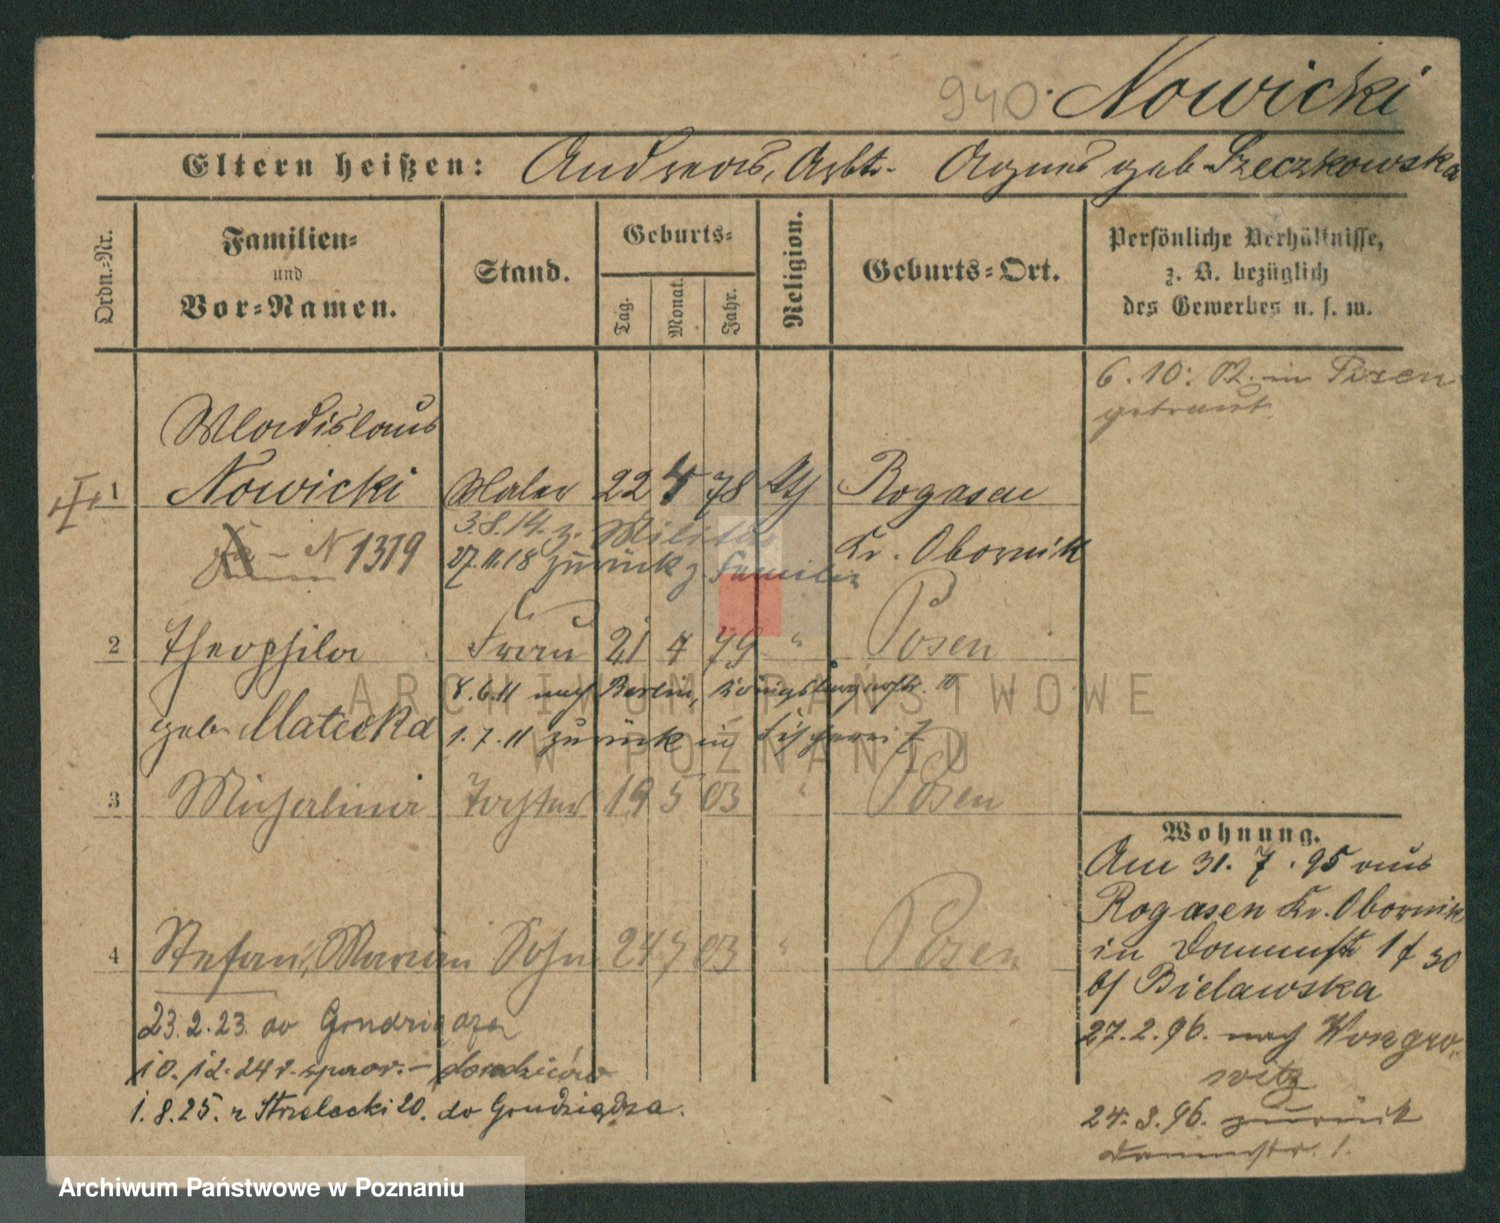 940. Nowicki
Eltern heißen: Andreas, Arbtr. Agnes geb. Szeczkowska
Ordn.-Nr.
Familien-
und
Vor-Namen.
Stand.
Geburts-
Tag.
Monat.
Jahr.
Religion.
Geburts-Ort.
Persönliche Verhältnisse,
z. B. bezüglich
des Gewerbes u. s. w.
6.10.02. in Posen
getraut
Wladislaus
1 Nowicki Maler 22 4 78 Rogasen
N 1319 3.8.14. z. Militär
27.11.18 zurück z. Familie Kr. Obornik
2 Theophila Frau 21 4 79 " Posen
8.6.11 nach Berlin, Königsbergerstr. 10
geb. Matecka 1.7.11 zurück in Fischerei 7
3 Michalina Tochter 19 5 03 " Posen
4 Stefan, Marian Sohn 24 7 03 " Posen
23.2.23. do Grudziądza
10.12.24 r. spow. - dowdziców
1.8.25. z Strzelecki 20. do Grudziądza.
Wohnung.
Am 31.7.95 aus
Rogasen Kr. Obornik
in Dominstr 1 f 30
b/ Bielawska
27.2.96. nach Wongro-
witz
24.3.96. zurück
Dominstr. 1.
ARCHIWUM PAŃSTWOWE
W POZNANIU
Archiwum Państwowe w Poznaniu